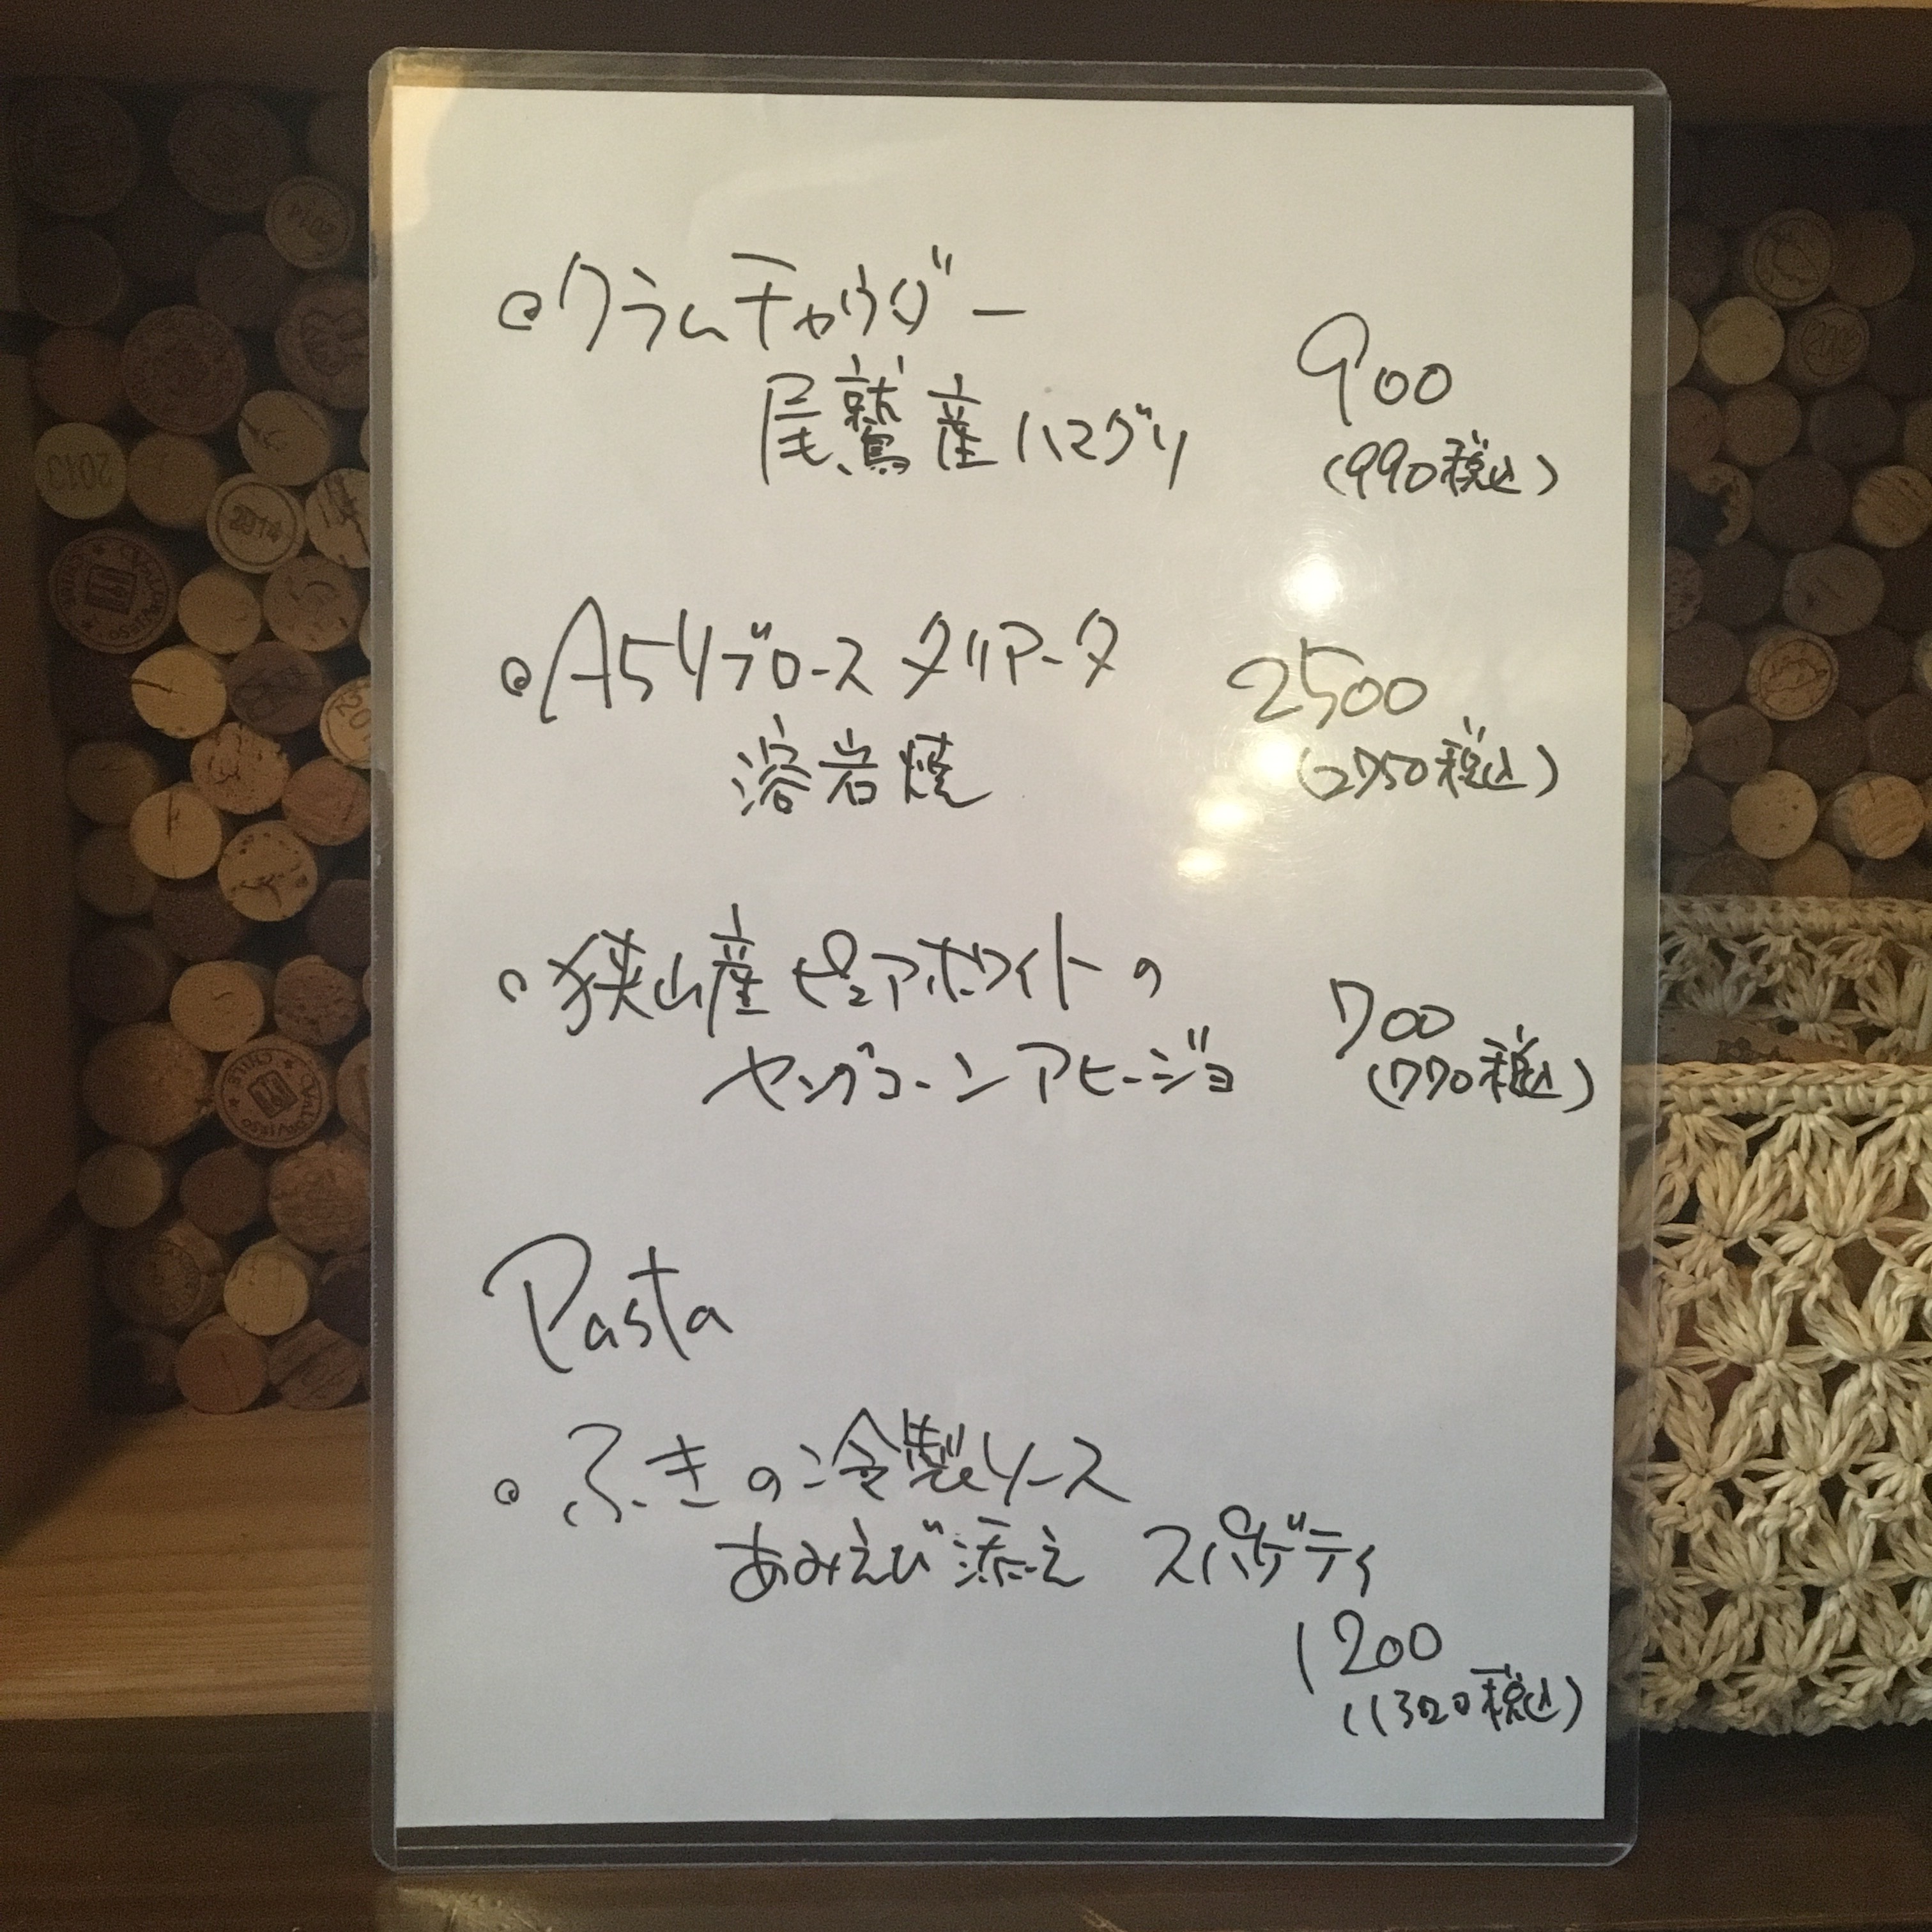 クラムチャウダー
尾鷲産ハマグリ
900
(990税込)
A5リブロース タリアータ
溶岩焼
2500
(2750税込)
狭山産ピュアホワイトの
ヤングコーン アヒージョ
700
(770税込)
Pasta
ふきの冷製ソース
あみえび添え スパゲティ
1200
(1320税込)
2014
2013
2014